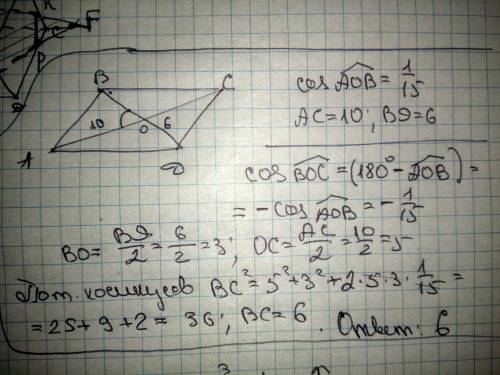 K
F
C
P
B
C
10
O
6
A
D
cos AOB = 1/15
AC=10; BD=6
cos BOC = (180° - AOB) =
= - cos AOB = - 1/15
BO = BD/2 = 6/2 = 3; OC = AC/2 = 10/2 = 5
По т. косинусов BC² = 5² + 3² + 2·5·3·1/15 =
= 25 + 9 + 2 = 36; BC = 6. Ответ: 6